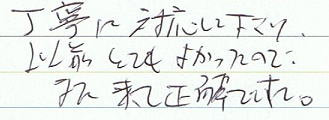 丁寧に対応して下さり、
以前とてもよかったので
また来て正解でした。